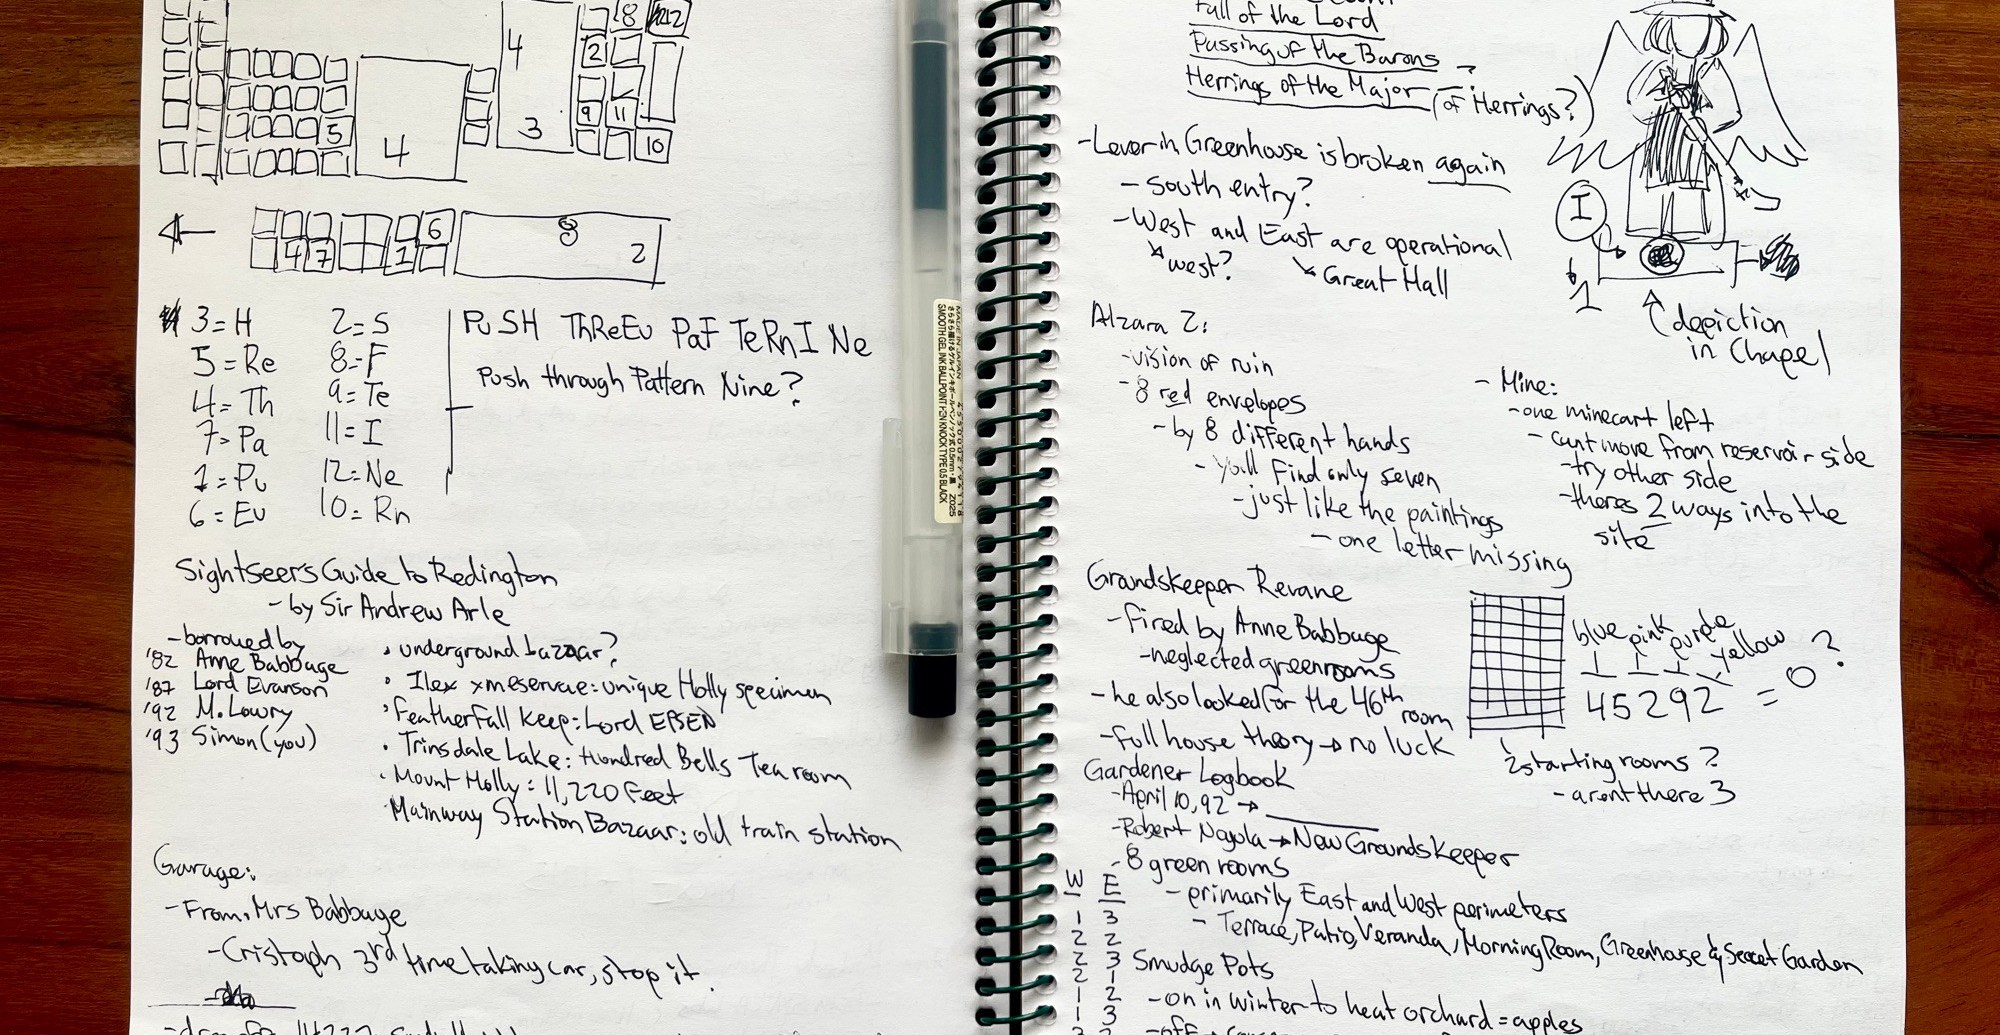 8 12
4 2
5 4 3 9 11 10
6
4 7 1 8 2
3=H 2=S
5=Re 8=F
4=Th 9=Te
7=Pa 11=I
1=Pu 12=Ne
6=Eu 10=Rn
PuSH ThReEu PaF TeRnI Ne
Push through Pattern Nine?
Sightseers Guide to Redington
- by Sir Andrew Arle
- borrowed by
'82 Anne Babbage
'87 Lord Evanson
'92 M. Lowry
'93 Simon (you)
• underground bazaar?
• Ilex xmeserveae: unique Holly specimen
• Featherfall Keep: Lord EPSEN
• Trinsdale Lake: Hundred Bells Tea room
• Mount Holly: 11,220 Feet
• Mainway Station Bazaar: old train station
Garage:
- From, Mrs Babbage
- Cristoph 3rd time taking car, stop it.
MADE IN JAPAN
SMOOTH GEL INK BALLPOINT PEN KNOCK TYPE 0.5 BLACK
2025
Fall of the Lord
Passing of the Barons
Herrings of the Major (of Herrings?)
- Lever in Greenhouse is broken again
- south entry?
- West and East are operational
west?
Great Hall
I
1
depiction
in Chapel
Alzara 2:
- vision of ruin
- 8 red envelopes
- by 8 different hands
- you'll find only seven
- just like the paintings
- one letter missing
- Mine:
- one minecart left
- cant move from reservoir side
- try other side
- theres 2 ways into the
site
Groundskeeper Revane
- fired by Anne Babbage
- neglected greenrooms
- he also looked for the 46th
room
- full house theory → no luck
blue pink purple yellow
45292 = 0?
2 starting rooms?
- arent there 3
Gardener Logbook
- April 10, 92 →
- Robert Nagola → New Groundskeeper
- 8 green rooms
- primarily East and West perimeters
- Terrace, Patio, Veranda, Morning Room, Greenhouse & Secret Garden
W E
1 3
2 2
2 3
2 1
1 2
1 3
3 2
Smudge Pots
- on in winter to heat orchard = apples
- off →